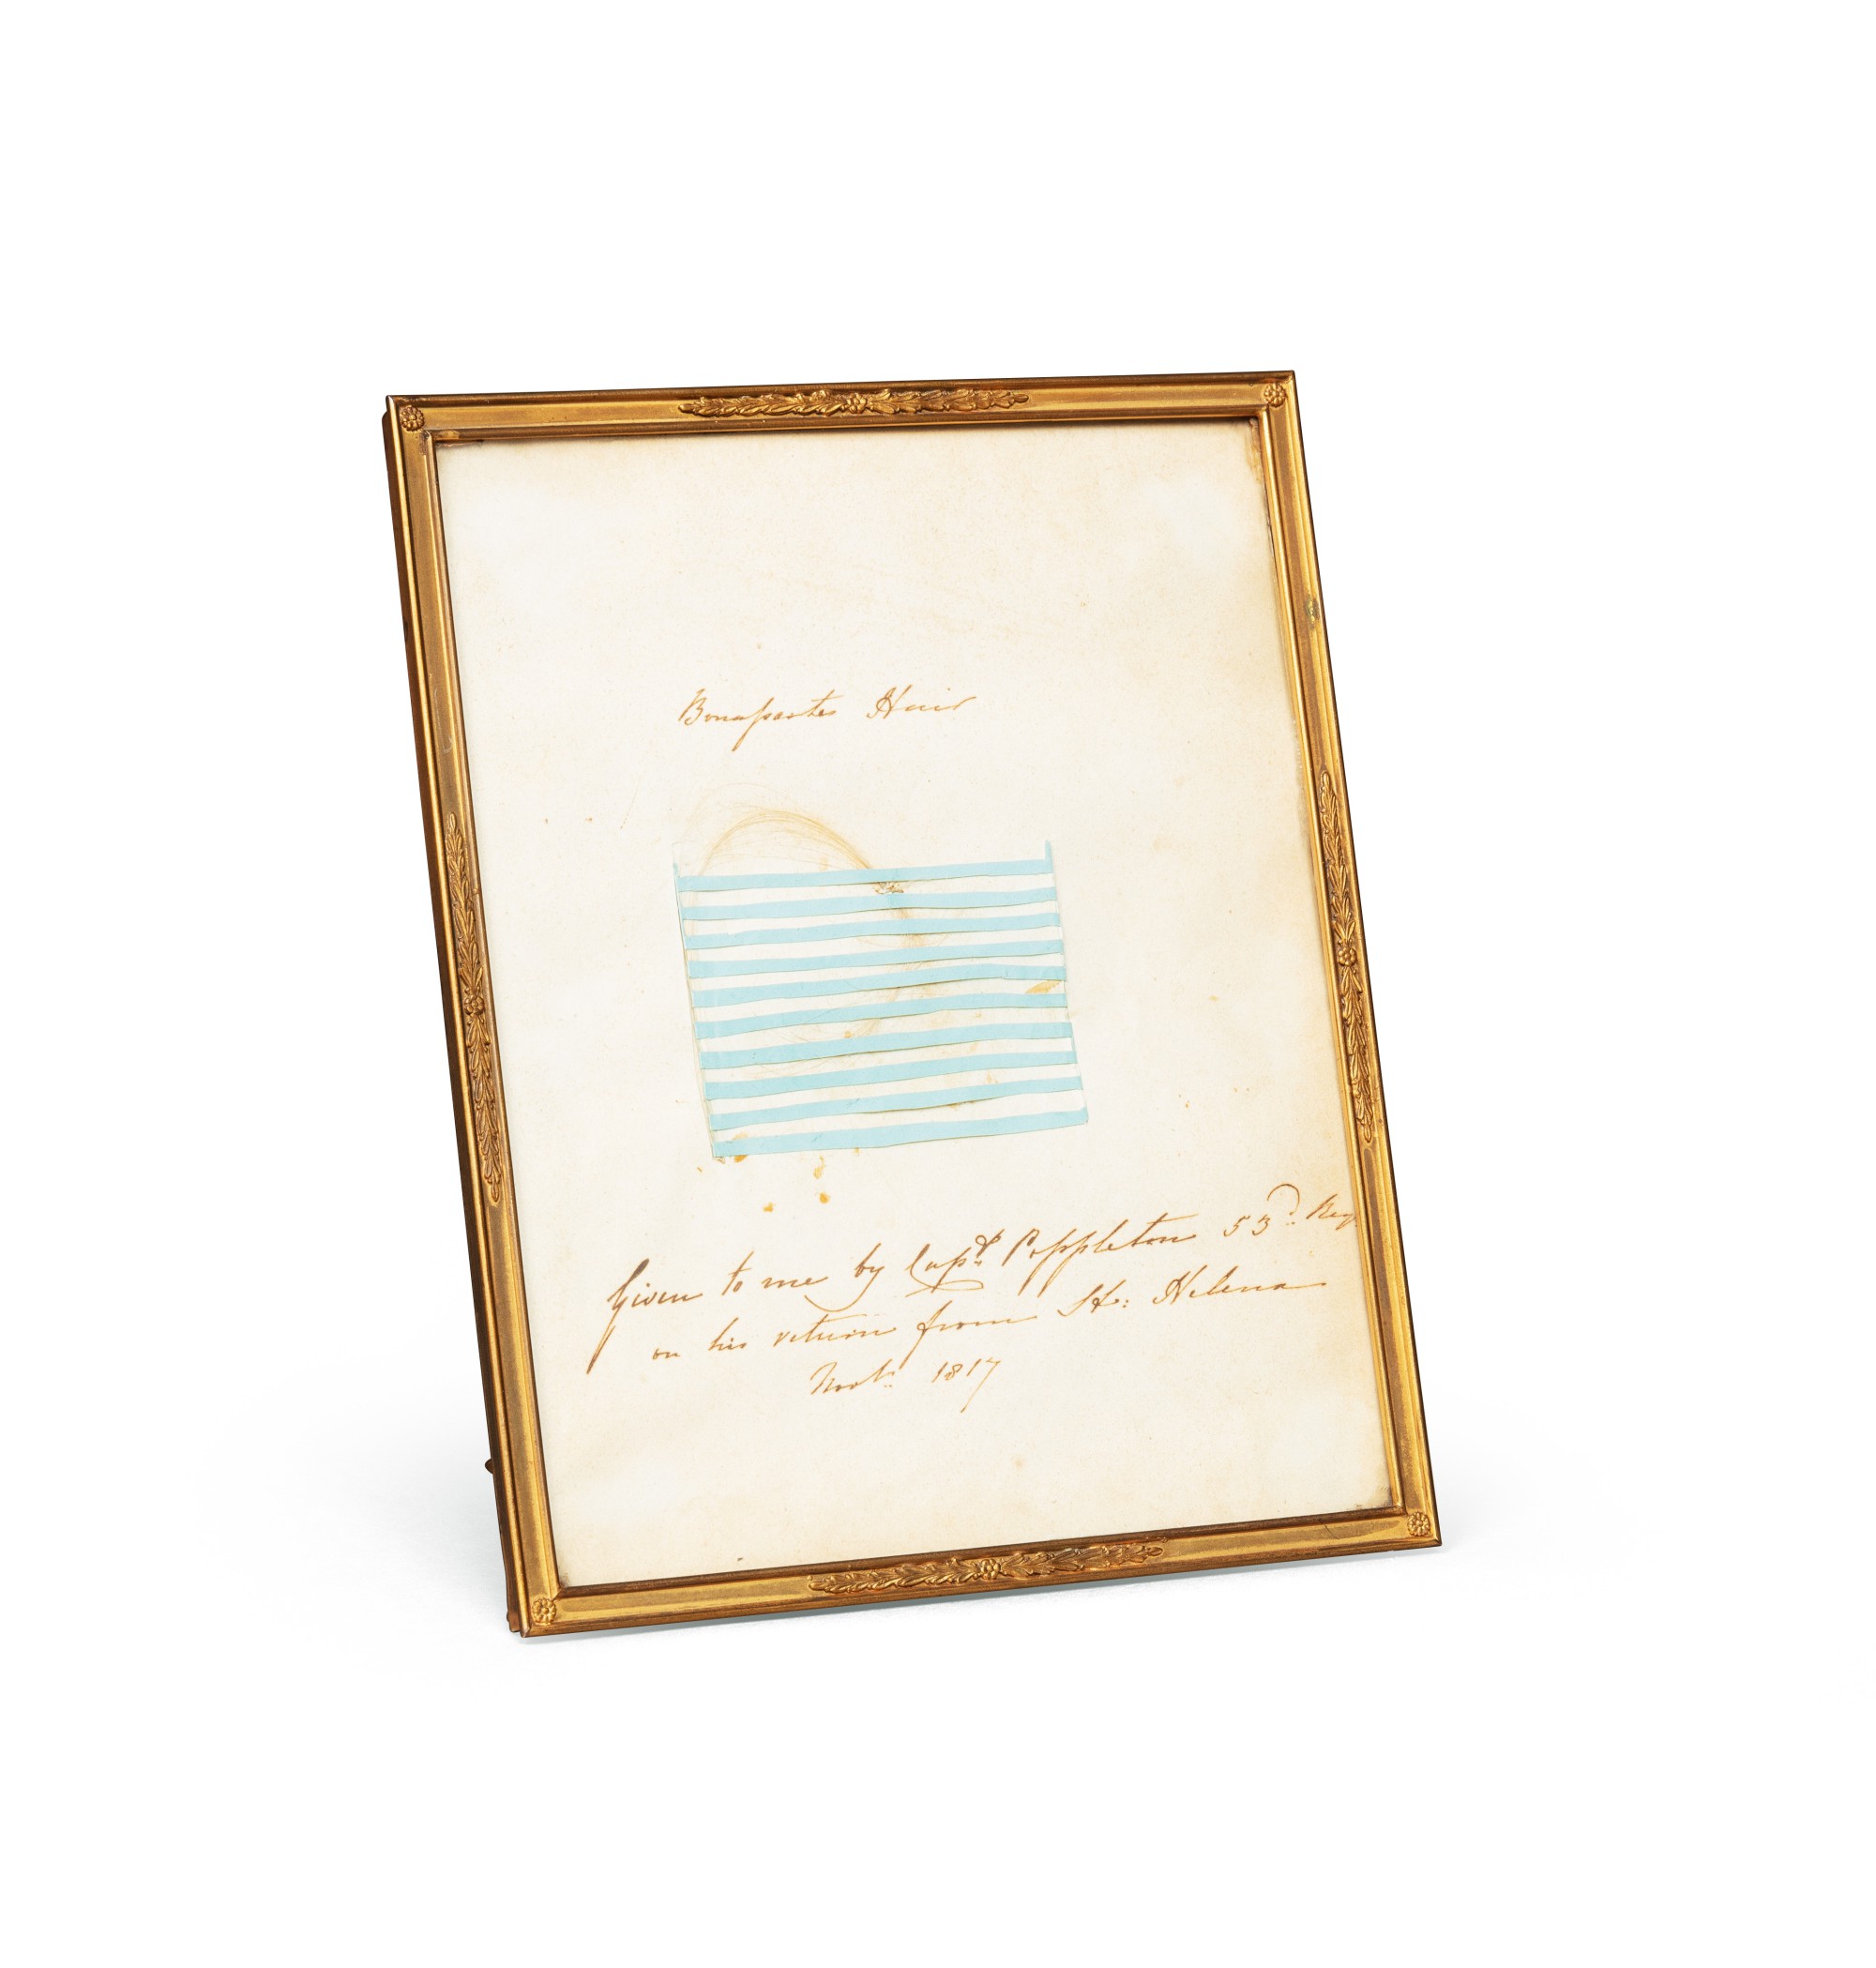 Bonapartes Hair
Given to me by Capt. Poppleton 53d. Reg
on his return from St: Helena
Novr. 1817